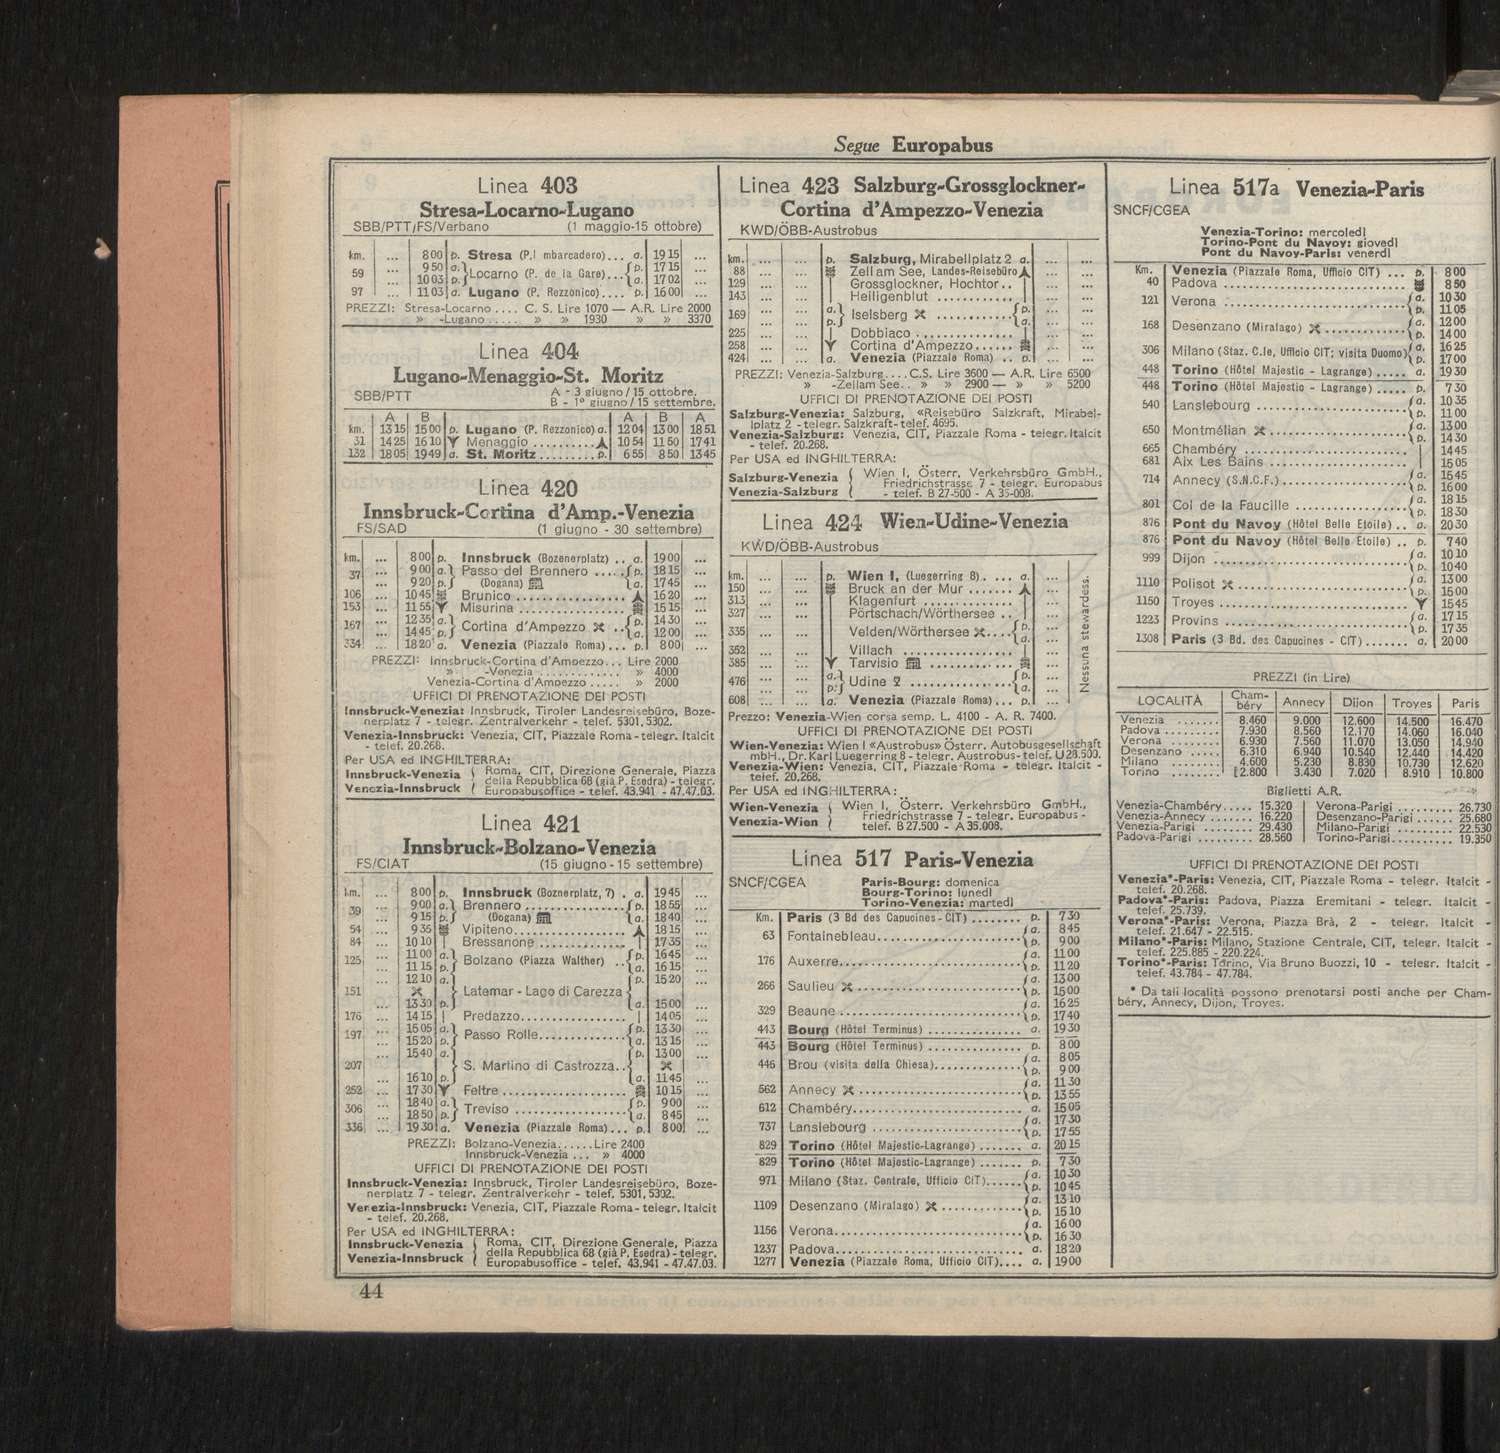 Segue Europabus
Linea 403
Stresa-Locarno-Lugano
SBB/PTT/FS/Verbano (1 maggio-15 ottobre)
km. ... 8 00 p. Stresa (P.l mbarcadero)... a. 19 15 ...
59 ... 9 50 a. Locarno (P. de la Gare)... p. 17 15 ...
... 10 03 p. a. 17 02 ...
97 ... 11 03 a. Lugano (P. Rezzonico).... p. 16 00 ...
PREZZI: Stresa-Locarno .... C. S. Lire 1070 — A.R. Lire 2000
» -Lugano ..... » » 1930 » » 3370
Linea 404
Lugano-Menaggio-St. Moritz
SBB/PTT A - 3 giugno/15 ottobre.
B - 1º giugno/15 settembre.
A B A B A
km. 13 15 15 00 p. Lugano (P. Rezzonico) a. 12 04 13 00 18 51
31 14 25 16 10 Menaggio .......... 10 54 11 50 17 41
132 18 05 19 49 a. St. Moritz .......... p. 6 55 8 50 13 45
Linea 420
Innsbruck-Cortina d'Amp.-Venezia
FS/SAD (1 giugno - 30 settembre)
km. ... 8 00 p. Innsbruck (Bozenerplatz) .. a. 19 00 ...
37 ... 9 00 a. Passo del Brennero ..... p. 18 15 ...
... 9 20 p. (Dogana) a. 17 45 ...
106 ... 10 45 Brunico ................ 16 20 ...
153 ... 11 55 Misurina ................ 15 15 ...
167 ... 12 35 a. Cortina d'Ampezzo .. p. 14 30 ...
... 14 45 p. a. 12 00 ...
334 ... 18 20 a. Venezia (Piazzale Roma)... p. 8 00 ...
PREZZI: Innsbruck-Cortina d'Ampezzo... Lire 2000
» -Venezia ............. » 4000
Venezia-Cortina d'Ampezzo ..... » 2000
UFFICI DI PRENOTAZIONE DEI POSTI
Innsbruck-Venezia: Innsbruck, Tiroler Landesreisebüro, Boze-
nerplatz 7 - telegr. Zentralverkehr - telef. 5301, 5302.
Venezia-Innsbruck: Venezia, CIT, Piazzale Roma - telegr. Italcit
- telef. 20.268.
Per USA ed INGHILTERRA:
Innsbruck-Venezia Roma, CIT, Direzione Generale, Piazza
della Repubblica 68 (già P. Esedra) - telegr.
Venezia-Innsbruck Europabusoffice - telef. 43.941 - 47.47.03.
Linea 421
Innsbruck-Bolzano-Venezia
FS/CIAT (15 giugno - 15 settembre)
km. ... 8 00 p. Innsbruck (Boznerplatz, 7) . a. 19 45 ...
39 ... 9 00 a. Brennero ................ p. 18 55 ...
... 9 15 p. (Dogana) a. 18 40 ...
54 ... 9 35 Vipiteno ................ 18 15 ...
84 ... 10 10 Bressanone .............. 17 35 ...
125 ... 11 00 a. Bolzano (Piazza Walther) .. p. 16 45 ...
... 11 15 p. a. 16 15 ...
... 12 10 a. p. 15 20 ...
151 Latemar - Lago di Carezza
... 13 30 p. a. 15 00 ...
176 ... 14 15 Predazzo ................ 14 05 ...
197 ... 15 05 a. Passo Rolle ............. p. 13 30 ...
... 15 20 p. a. 13 15 ...
... 15 40 a. p. 13 00 ...
207 S. Martino di Castrozza..
... 16 10 p. a. 11 45 ...
252 ... 17 30 Feltre .................. 10 15 ...
306 ... 18 40 a. Treviso ................. p. 9 00 ...
... 18 50 p. a. 8 45 ...
336 ... 19 30 a. Venezia (Piazzale Roma)... p. 8 00 ...
PREZZI: Bolzano-Venezia......Lire 2400
Innsbruck-Venezia ... » 4000
UFFICI DI PRENOTAZIONE DEI POSTI
Innsbruck-Venezia: Innsbruck, Tiroler Landesreisebüro, Boze-
nerplatz 7 - telegr. Zentralverkehr - telef. 5301, 5302.
Venezia-Innsbruck: Venezia, CIT, Piazzale Roma - telegr. Italcit
- telef. 20.268.
Per USA ed INGHILTERRA:
Innsbruck-Venezia Roma, CIT, Direzione Generale, Piazza
della Repubblica 68 (già P. Esedra) - telegr.
Venezia-Innsbruck Europabusoffice - telef. 43.941 - 47.47.03.
44
Linea 423 Salzburg-Grossglockner-
Cortina d'Ampezzo-Venezia
KWD/ÖBB-Austrobus
km. ... ... p. Salzburg, Mirabellplatz 2 a. ... ...
88 ... ... Zell am See, Landes-Reisebüro ... ...
129 ... ... Grossglockner, Hochtor .. ... ...
143 ... ... Heiligenblut ............ ... ...
169 ... ... a. Iselsberg ............ p. ... ...
... ... p. a. ... ...
225 ... ... Dobbiaco ............... ... ...
258 ... ... Cortina d'Ampezzo...... ... ...
424 ... ... a. Venezia (Piazzale Roma) .. p. ... ...
PREZZI: Venezia-Salzburg....C.S. Lire 3600 — A.R. Lire 6500
» -Zell am See.. » » 2900 — » » 5200
UFFICI DI PRENOTAZIONE DEI POSTI
Salzburg-Venezia: Salzburg, «Reisebüro Salzkraft, Mirabel-
lplatz 2 - telegr. Salzkraft - telef. 4695.
Venezia-Salzburg: Venezia, CIT, Piazzale Roma - telegr. Italcit
- telef. 20.268.
Per USA ed INGHILTERRA:
Salzburg-Venezia Wien I, Österr. Verkehrsbüro GmbH.,
Friedrichstrasse 7 - telegr. Europabus
Venezia-Salzburg - telef. B 27-500 - A 35-008.
Linea 424 Wien-Udine-Venezia
KWD/ÖBB-Austrobus
km. ... ... p. Wien I, (Luegerring 8). ... a. ...
150 ... ... Bruck an der Mur ....... ...
313 ... ... Klagenfurt ............. ...
327 ... ... Pörtschach/Wörthersee .. ...
335 ... ... Velden/Wörthersee .... p. ...
... ... a. ...
352 ... ... Villach ................ ...
385 ... ... Tarvisio ............... ...
476 ... ... a. Udine ............... p. ...
... ... p. a. ...
608 ... ... a. Venezia (Piazzale Roma)... p. ...
Nessuna stewardess.
Prezzo: Venezia-Wien corsa semp. L. 4100 - A. R. 7400.
UFFICI DI PRENOTAZIONE DEI POSTI
Wien-Venezia: Wien I «Austrobus» Österr. Autobusgesellschaft
mbH., Dr. Karl Luegerring 8 - telegr. Austrobus - telef. U 28.500.
Venezia-Wien: Venezia, CIT, Piazzale Roma - telegr. Italcit -
telef. 20.268.
Per USA ed INGHILTERRA:
Wien-Venezia Wien I, Österr. Verkehrsbüro GmbH.,
Friedrichstrasse 7 - telegr. Europabus -
Venezia-Wien telef. B 27.500 - A 35.008.
Linea 517 Paris-Venezia
SNCF/CGEA Paris-Bourg: domenica
Bourg-Torino: lunedì
Torino-Venezia: martedì
Km. Paris (3 Bd des Capucines - CIT) ........ p. 7 30
63 Fontainebleau............. a. 8 45
p. 9 00
176 Auxerre................... a. 11 00
p. 11 20
266 Saulieu .................. a. 13 00
p. 15 00
329 Beaune ................... a. 16 25
p. 17 40
443 Bourg (Hôtel Terminus) ............... a. 19 30
443 Bourg (Hôtel Terminus) ............... p. 8 00
446 Brou (visita della Chiesa)............ a. 8 05
p. 9 00
562 Annecy ................... a. 11 30
p. 13 55
612 Chambéry.................. a. 15 05
737 Lanslebourg .............. a. 17 30
p. 17 55
829 Torino (Hôtel Majestic-Lagrange) ....... a. 20 15
829 Torino (Hôtel Majestic-Lagrange) ....... p. 7 30
971 Milano (Staz. Centrale, Ufficio CIT)...... a. 10 30
p. 10 45
1109 Desenzano (Miralago) ............. a. 13 10
p. 15 10
1156 Verona................... a. 16 00
p. 16 30
1237 Padova................... a. 18 20
1277 Venezia (Piazzale Roma, Ufficio CIT).... a. 19 00
Linea 517a Venezia-Paris
SNCF/CGEA
Venezia-Torino: mercoledì
Torino-Pont du Navoy: giovedì
Pont du Navoy-Paris: venerdì
Km. Venezia (Piazzale Roma, Ufficio CIT) ... p. 8 00
40 Padova ........................ 8 50
121 Verona ....................... a. 10 30
p. 11 05
168 Desenzano (Miralago) ............. a. 12 00
p. 14 00
306 Milano (Staz. C.le, Ufficio CIT; visita Duomo) a. 16 25
p. 17 00
448 Torino (Hôtel Majestic - Lagrange) ..... a. 19 30
448 Torino (Hôtel Majestic - Lagrange) ..... p. 7 30
540 Lanslebourg .................. a. 10 35
p. 11 00
650 Montmélian ................... a. 13 00
p. 14 30
665 Chambéry ..................... 14 45
681 Aix Les Bains ................ 15 05
714 Annecy (S.N.C.F.)............. a. 15 45
p. 16 00
801 Col de la Faucille ........... a. 18 15
p. 18 30
876 Pont du Navoy (Hôtel Belle Etoile) .. a. 20 30
876 Pont du Navoy (Hôtel Belle Etoile) .. p. 7 40
999 Dijon ........................ a. 10 10
p. 10 40
1110 Polisot ..................... a. 13 00
p. 15 00
1150 Troyes ...................... 15 45
1223 Provins ..................... a. 17 15
p. 17 35
1308 Paris (3 Bd. des Capucines - CIT) ....... a. 20 00
PREZZI (in Lire)
LOCALITÀ Cham-béry Annecy Dijon Troyes Paris
Venezia ....... 8.460 9.000 12.600 14.500 16.470
Padova ......... 7.930 8.560 12.170 14.060 16.040
Verona ........ 6.930 7.560 11.070 13.050 14.940
Desenzano ..... 6.310 6.940 10.540 12.440 14.420
Milano ........ 4.600 5.230 8.830 10.730 12.620
Torino ........ 2.800 3.430 7.020 8.910 10.800
Biglietti A.R.
Venezia-Chambéry..... 15.320 Verona-Parigi ......... 26.730
Venezia-Annecy ....... 16.220 Desenzano-Parigi ...... 25.680
Venezia-Parigi ........ 29.430 Milano-Parigi ......... 22.530
Padova-Parigi ........ 28.560 Torino-Parigi.......... 19.350
UFFICI DI PRENOTAZIONE DEI POSTI
Venezia*-Paris: Venezia, CIT, Piazzale Roma - telegr. Italcit -
telef. 20.268.
Padova*-Paris: Padova, Piazza Eremitani - telegr. Italcit -
telef. 25.739.
Verona*-Paris: Verona, Piazza Brà, 2 - telegr. Italcit -
telef. 21.647 - 22.515.
Milano*-Paris: Milano, Stazione Centrale, CIT, telegr. Italcit -
telef. 225.885 - 220.224.
Torino*-Paris: Torino, Via Bruno Buozzi, 10 - telegr. Italcit -
telef. 43.784 - 47.784.
* Da tali località possono prenotarsi posti anche per Cham-
béry, Annecy, Dijon, Troyes.